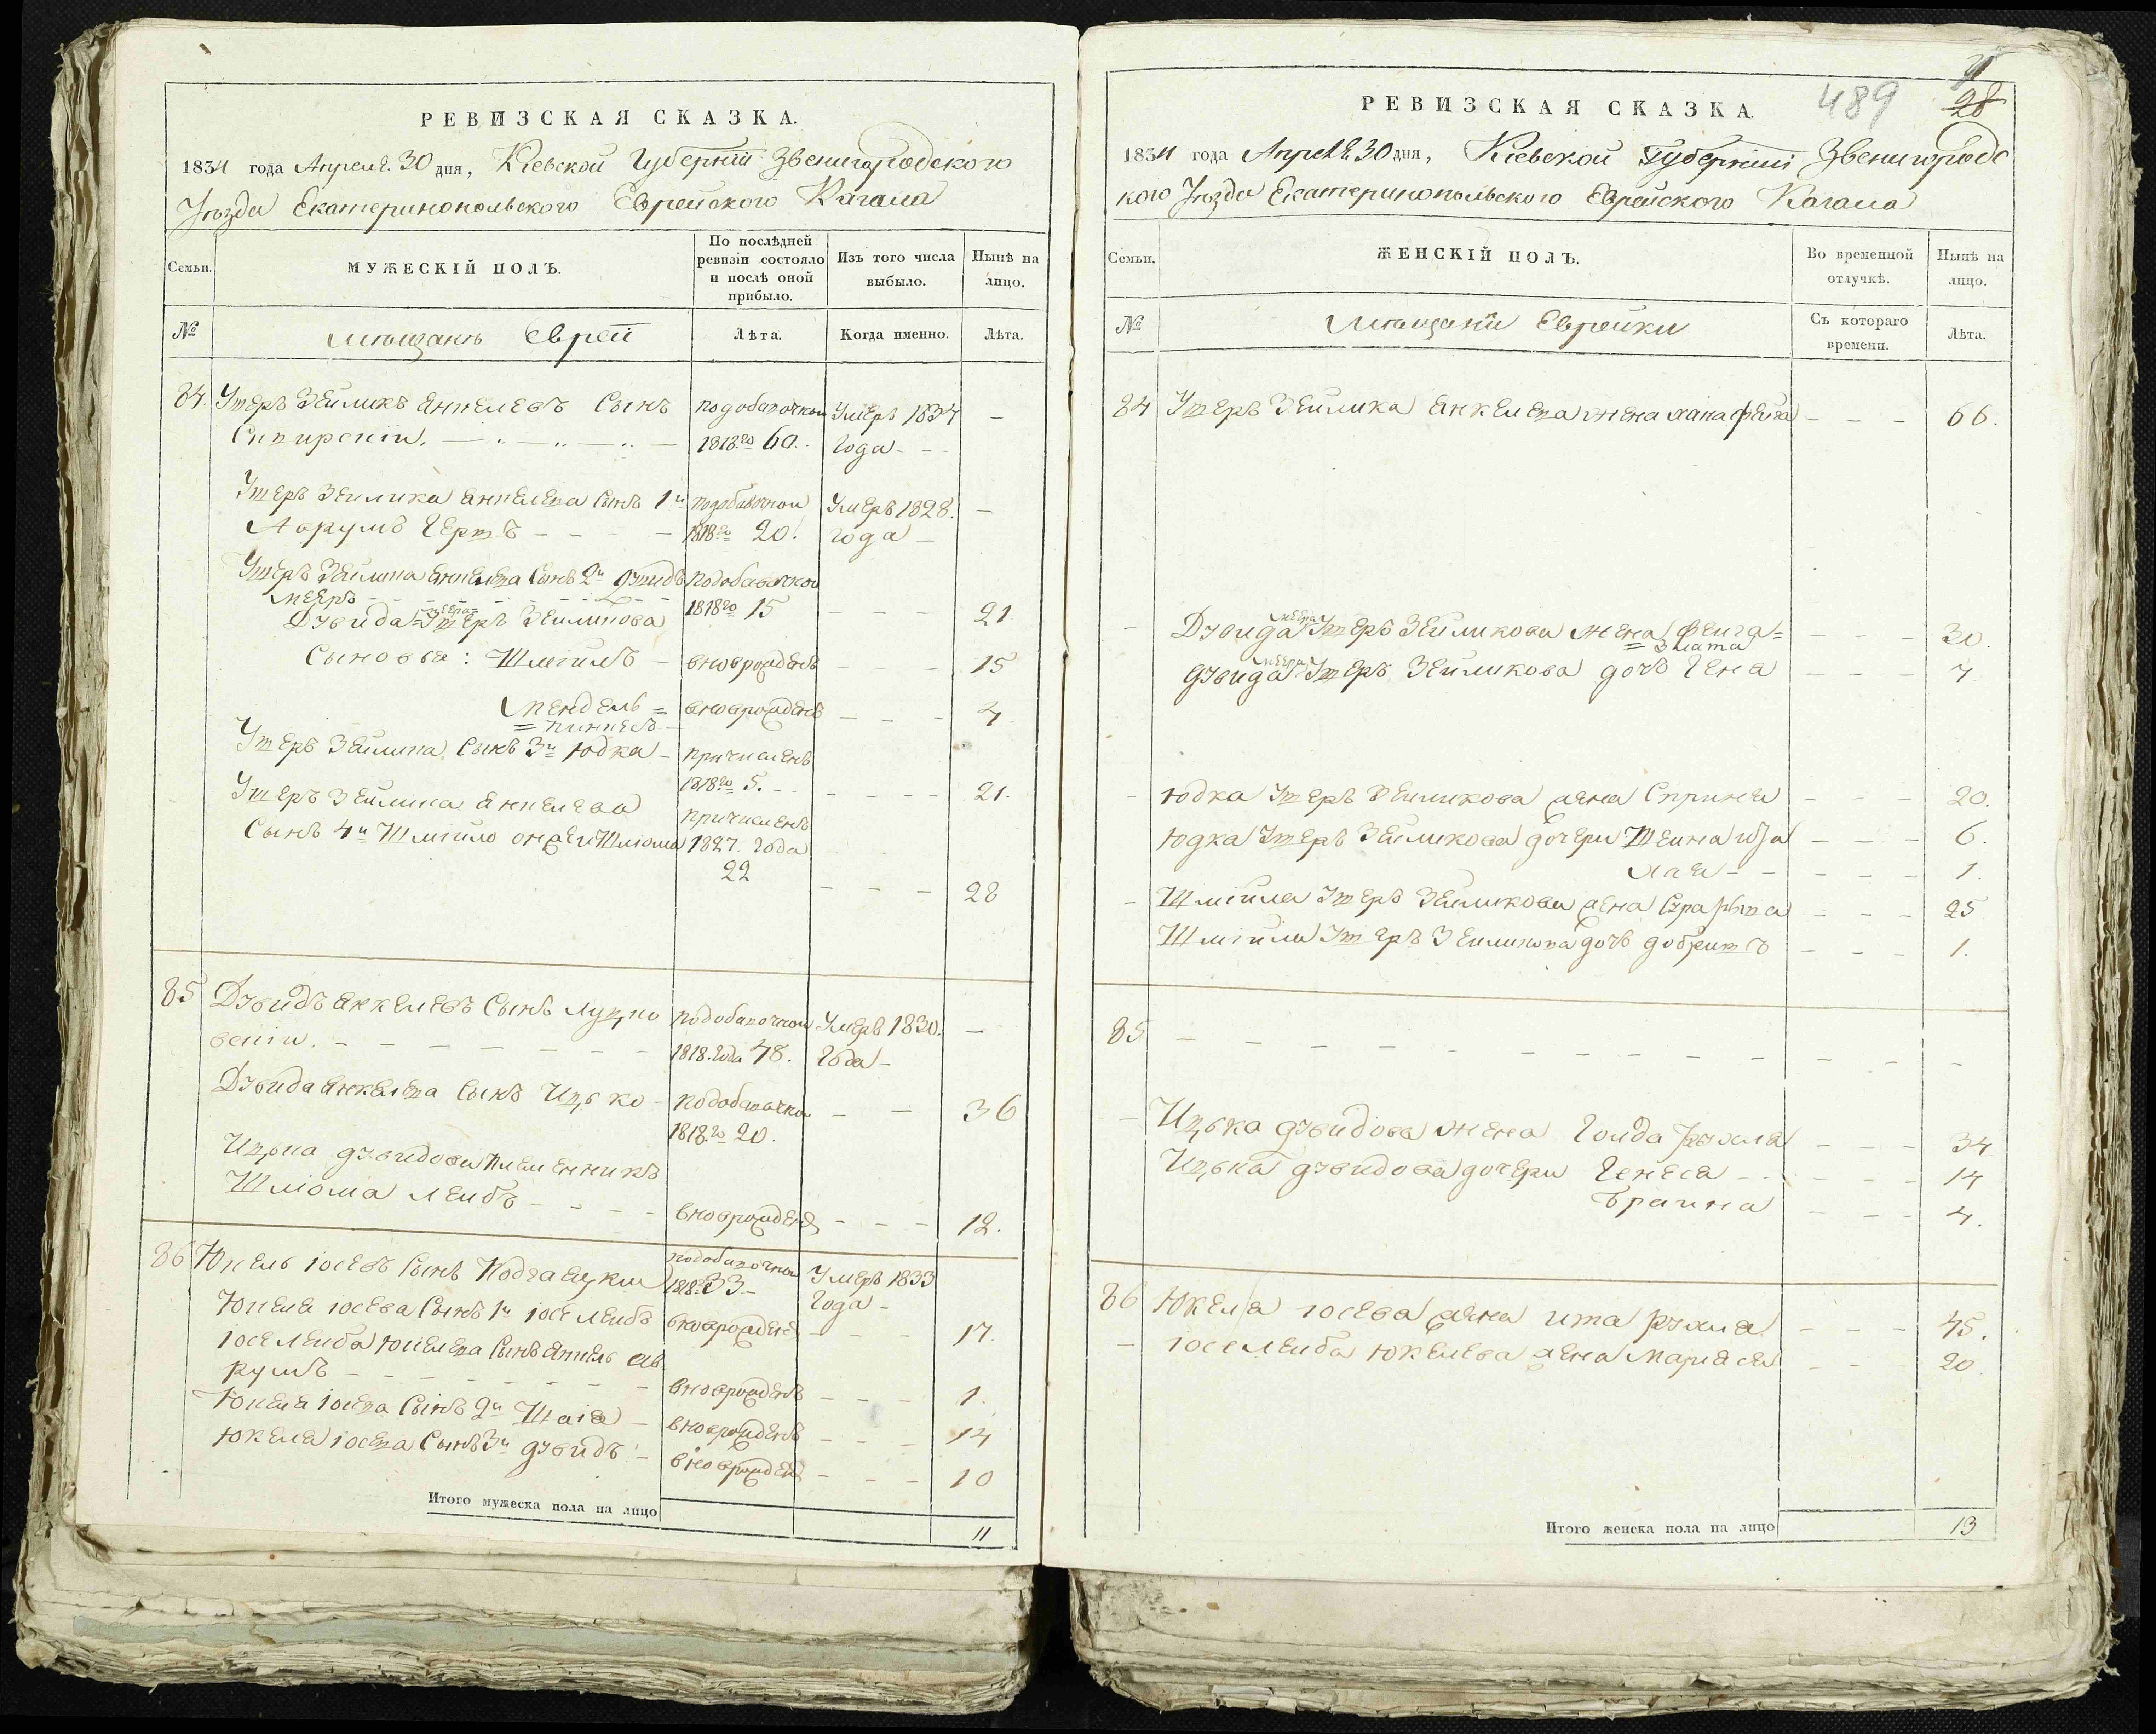 РЕВИЗСКАЯ СКАЗКА.
1834 года Апреля 30 дня, Кіевской Губерніи Звенигородского
Уѣзда Екатеринопольского Еврейского Кагала
Семьи.
МУЖЕСКІЙ ПОЛЪ.
По послѣдней ревизіи состояло и послѣ оной прибыло.
Изъ того числа выбыло.
Нынѣ на лицо.
№
мѣщанъ Еврей
Лѣта.
Когда именно.
Лѣта.
84. Утеръ Зейликъ Янкелевъ Сынъ подобавочной Умеръ 1834 —
1818го 60. года
Утеръ Зейлика Янкелева Сынъ 1й подобавочной Умеръ 1828. —
Аврумъ Герть 1818го 20. года —
Утеръ Зейлика Янкелева Сынъ 2й Дувидъ подобавочной
Мееръ 1818го 15 21
Дувида Меера Утеръ Зейликова
Сыновья: Шмійлъ вновьрожденъ 15
Мендель = вновьрожденъ 4
= Пинкесъ
Утеръ Зейлика Сынъ 3й Юдка причисленъ
1818го 5. 21.
Утеръ Зейлика Янкелева причисленъ
Сынъ 4й Шмійло онже и Шліома 1827. года
22 28
85 Дувидъ Янкелевъ Сынъ подобавочной Умеръ 1830. —
1818. года 48. года —
Дувида Янкелева Сынъ Ицько подобавочной 36
1818го 20.
Ицька Дувидова племенникъ
Шліома Лейбъ вновьрожденъ 12.
86 Юкель Іосевъ Сынъ подобавочной Умеръ 1833
1818го 33 года —
Юкеля Іосева Сынъ 1й Іосе Лейбъ вновьрожденъ 17.
Іосе Лейба Юкелева Сынъ Янкель Ав
румъ вновьрожденъ 1.
Юкеля Іосева Сынъ 2й Шаія вновьрожденъ 14
Юкеля Іосева Сынъ 3й Дувидъ вновьрожденъ 10
Итого мужеска пола на лицо 11
489
28
РЕВИЗСКАЯ СКАЗКА
1834 года Апреля 30 дня, Кіевской Губерніи Звенигородс
кого Уѣзда Екатеринопольского Еврейского Кагала
Семьи.
ЖЕНСКІЙ ПОЛЪ.
Во временной отлучкѣ.
Нынѣ на лицо.
№
мѣщанки Еврейки
Съ котораго времени.
Лѣта.
84 Утеръ Зейлика Янкелева жена Хана Фейга 66.
Дувида Меера Утеръ Зейликова жена Фейга = 30.
= Злата
Дувида Меера Утеръ Зейликова дочь Гена 7
Юдка Утеръ Зейликова жена Спринця 20.
Юдка Утеръ Зейликова дочери Шейна 6.
Лая 1.
Шмійла Утеръ Зейликова жена Сура 25
Шмійла Утеръ Зейликова дочь Добришъ 1.
85
Ицька Дувидова жена Голда Рухля 34
Ицька Дувидова дочери Генеся 14
Браина 4.
86 Юкеля Іосева жена Ита Рухля 45.
Іосе Лейба Юкелева жена Маріася 20
Итого женска пола на лицо 13